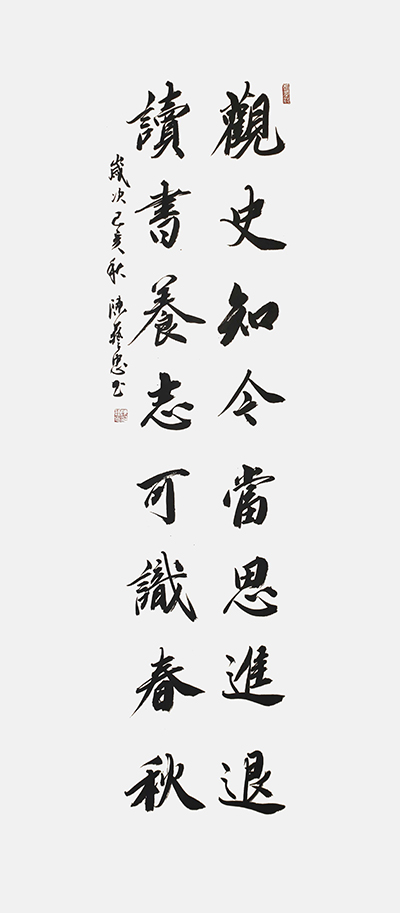 觀史知今當思進退
讀書養志可識春秋
歲次己亥秋陳藝忠書